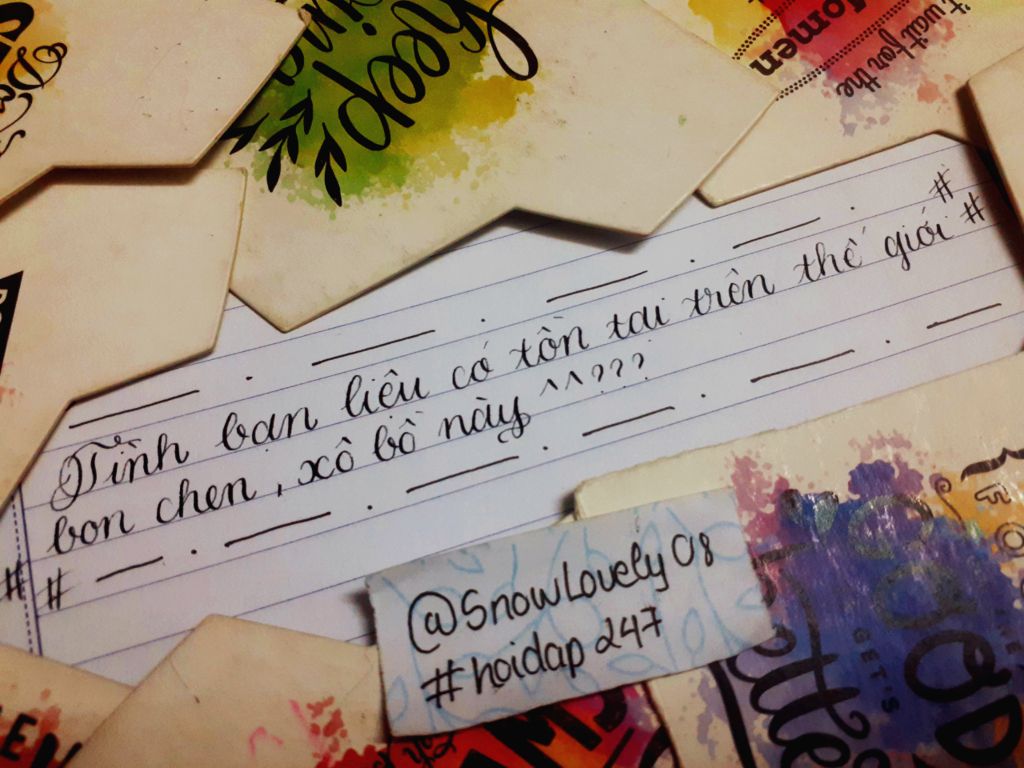 Keep
Momen
t wait for the
# #
Tình bạn liệu có tồn tại trên thế giới
bon chen, xô bồ này ^^???
# #
@SnowLovely08
#hoidap247
GOOD
GET'S